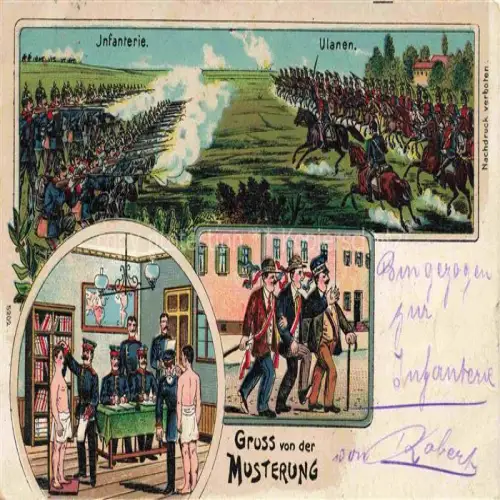 Infanterie.
Ulanen.
Nachdruck verboten.
Gruss von der
MUSTERUNG
gezogen
zur
Infanterie
von Robert